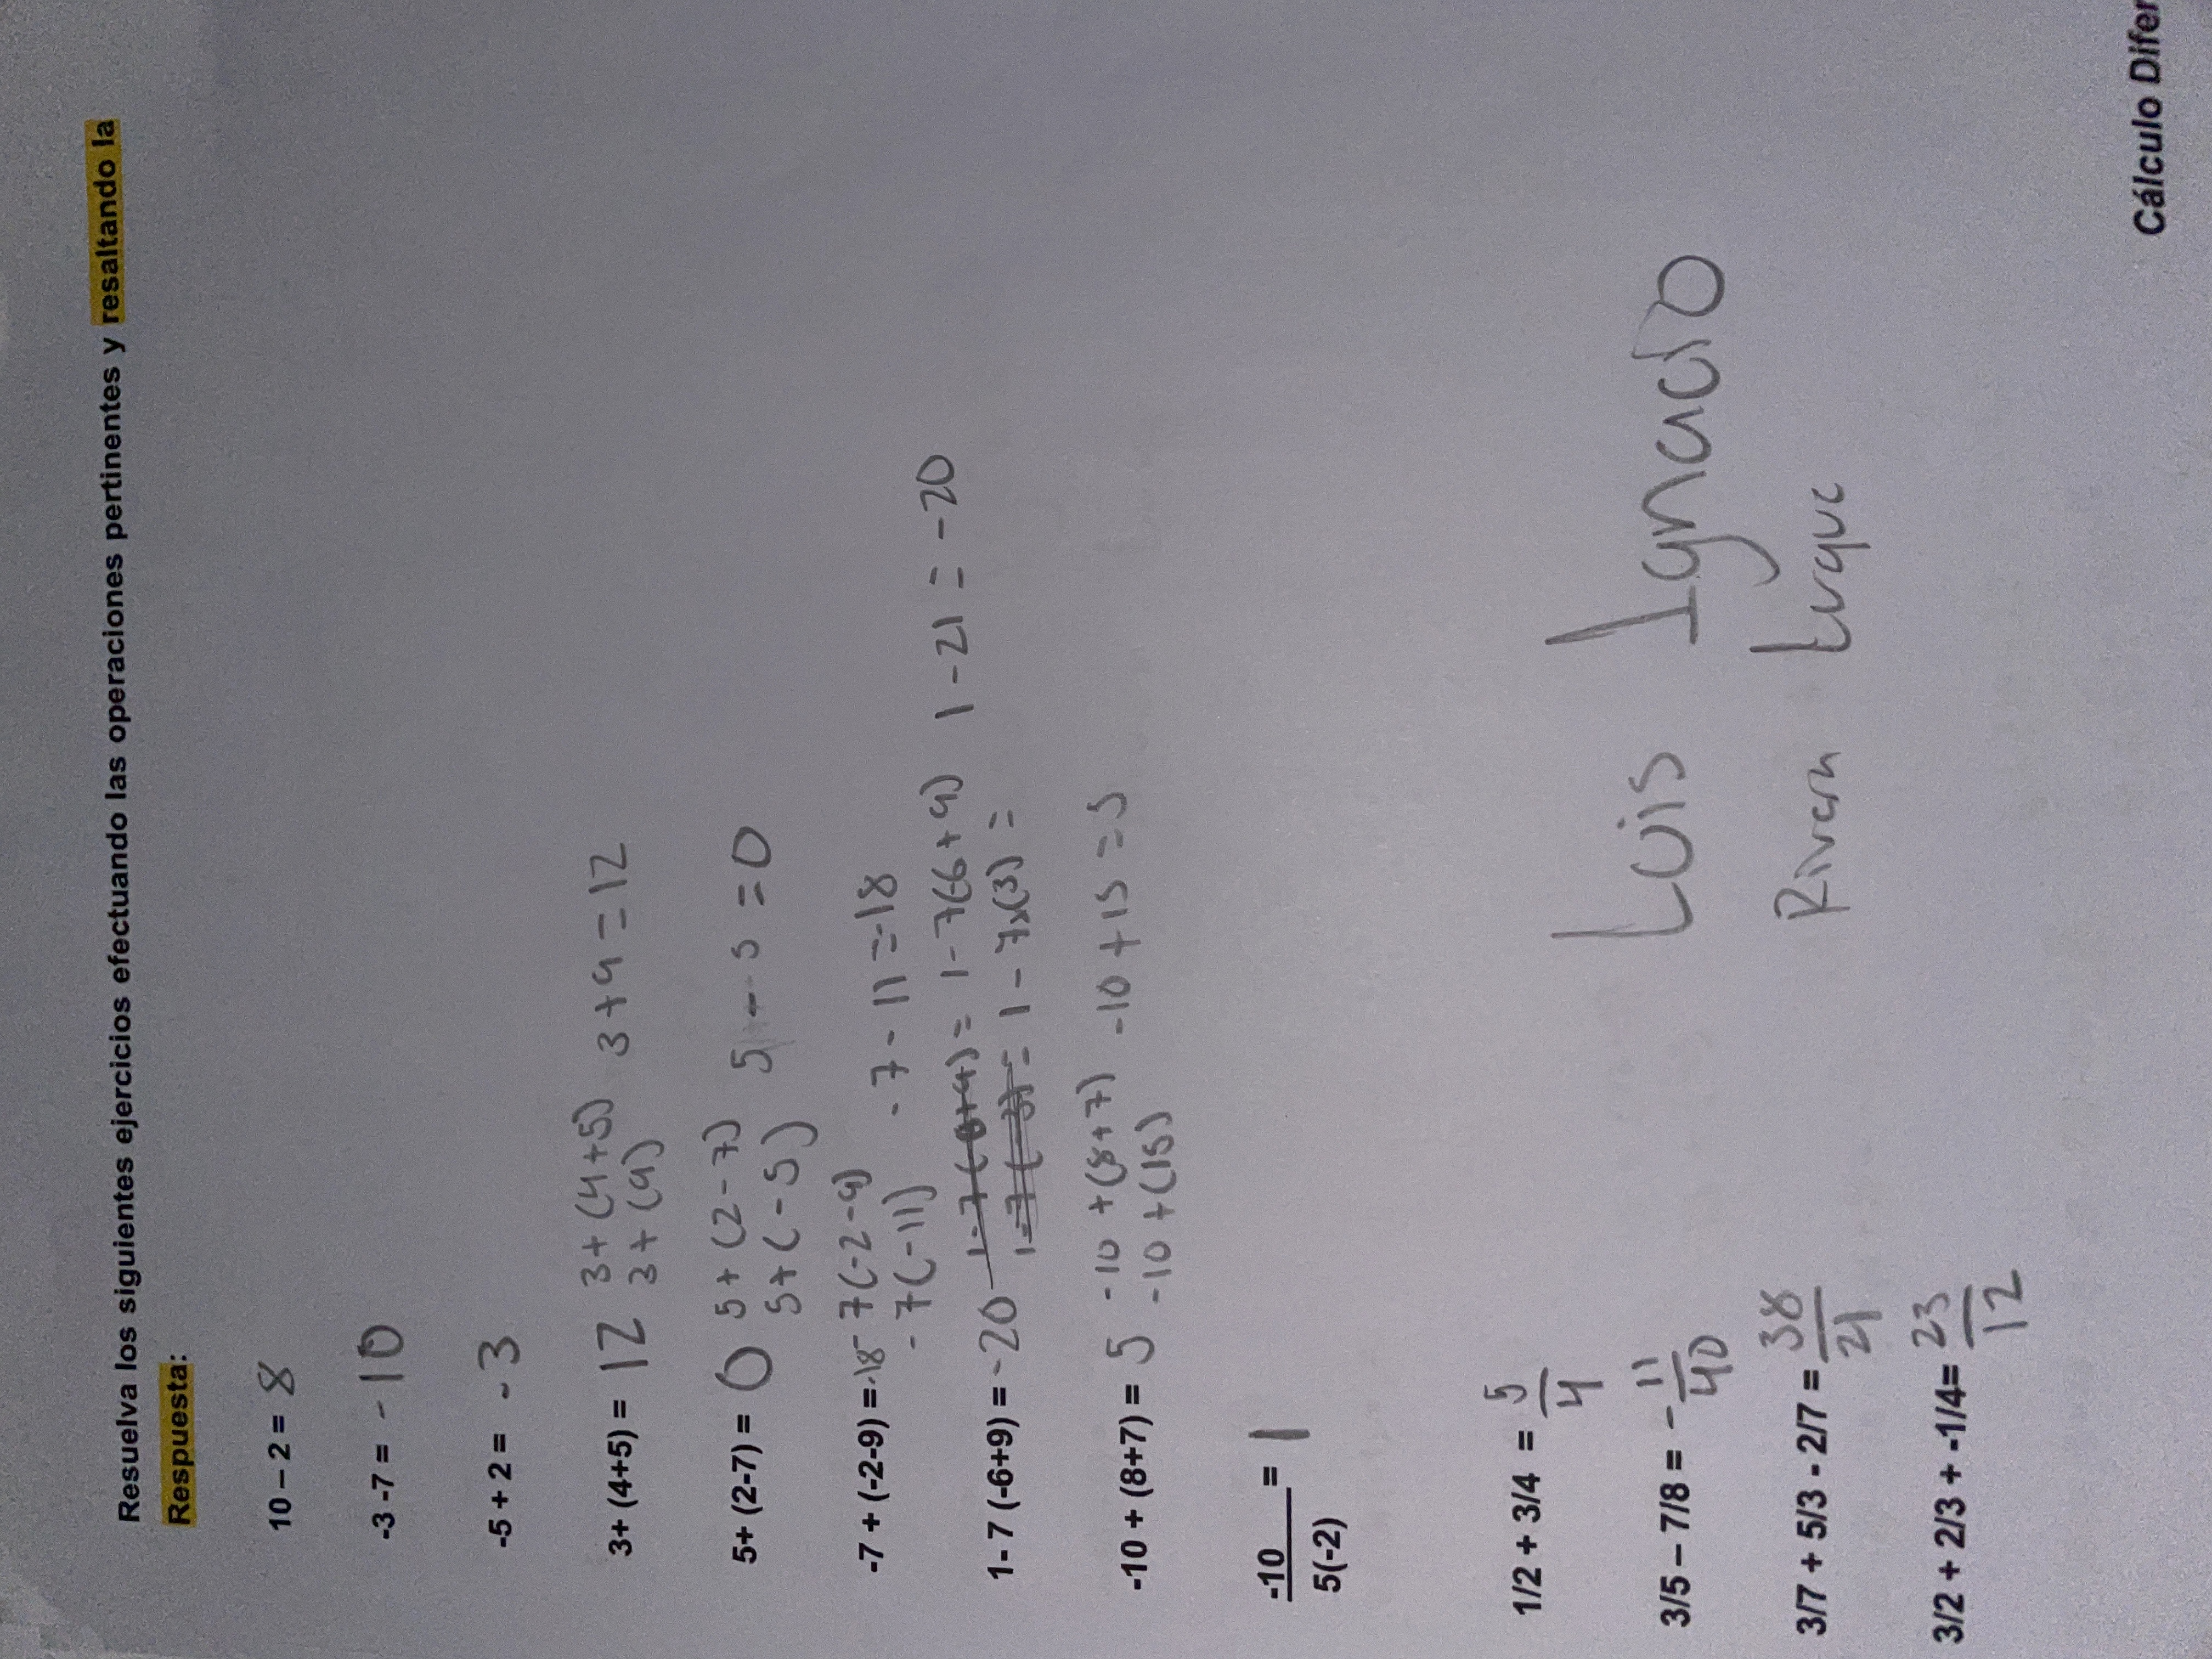 Resuelva los siguientes ejercicios efectuando las operaciones pertinentes y resaltando la
Respuesta:
10 – 2 = 8
-3 -7 = - 10
-5 + 2 = - 3
3+ (4+5) = 12 3+(4+5) 3+9=12
3+(9)
5+ (2-7) = 0 5+(2-7) 5 - 5 = 0
5+(-5)
-7 + (-2-9) =-18 -7(-2-9) -7-11=-18
-7(-11)
1- 7 (-6+9) = -20 1-7(6+9)= 1-7(-6+9) 1-21=-20
1-7(-3)= 1-7x(3)=
-10 + (8+7) = 5 -10+(8+7) -10+15=5
-10+(15)
-10 = 1
5(-2)
1/2 + 3/4 = 5/4
3/5 – 7/8 = -11/40
3/7 + 5/3 - 2/7 = 38/21
3/2 + 2/3 + -1/4= 23/12
Luis Ignacio
Rivera Luque
Cálculo Difer